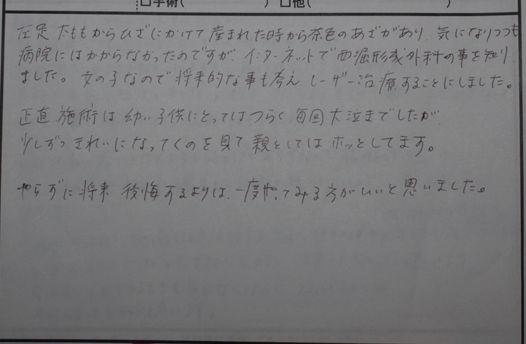 □手術(　　　　　)　□他(
左足 太ももからひざにかけて 産まれた時から茶色のあざがあり、気になりつつも
病院にはかからなかったのですが、インターネットで西堀形成外科の事を知り
ました。女の子なので将来的な事も考え レーザー治療することにしました。
正直 施術は 幼い子供にとってはつらく 毎回大泣きでしたが
少しずつ きれいになってくのを見て 親としてはホッとしてます。
やらずに将来 後悔するよりは、一度やってみる方がいいと思いました。